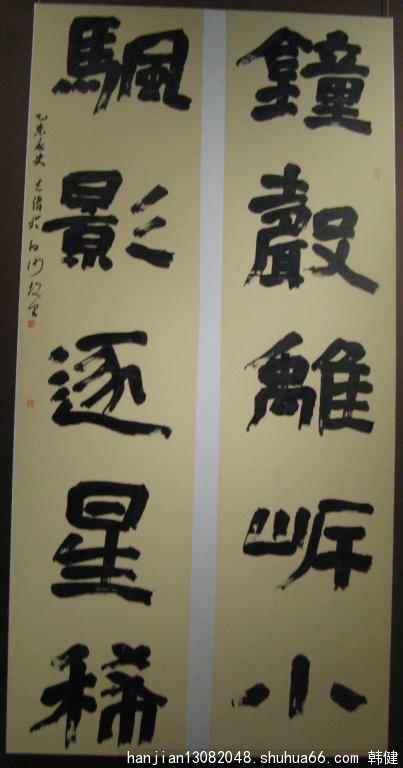 鐘聲離岸小
颿影逐星稀
乙未
hanjian13082048.shuhua66.com 韩健